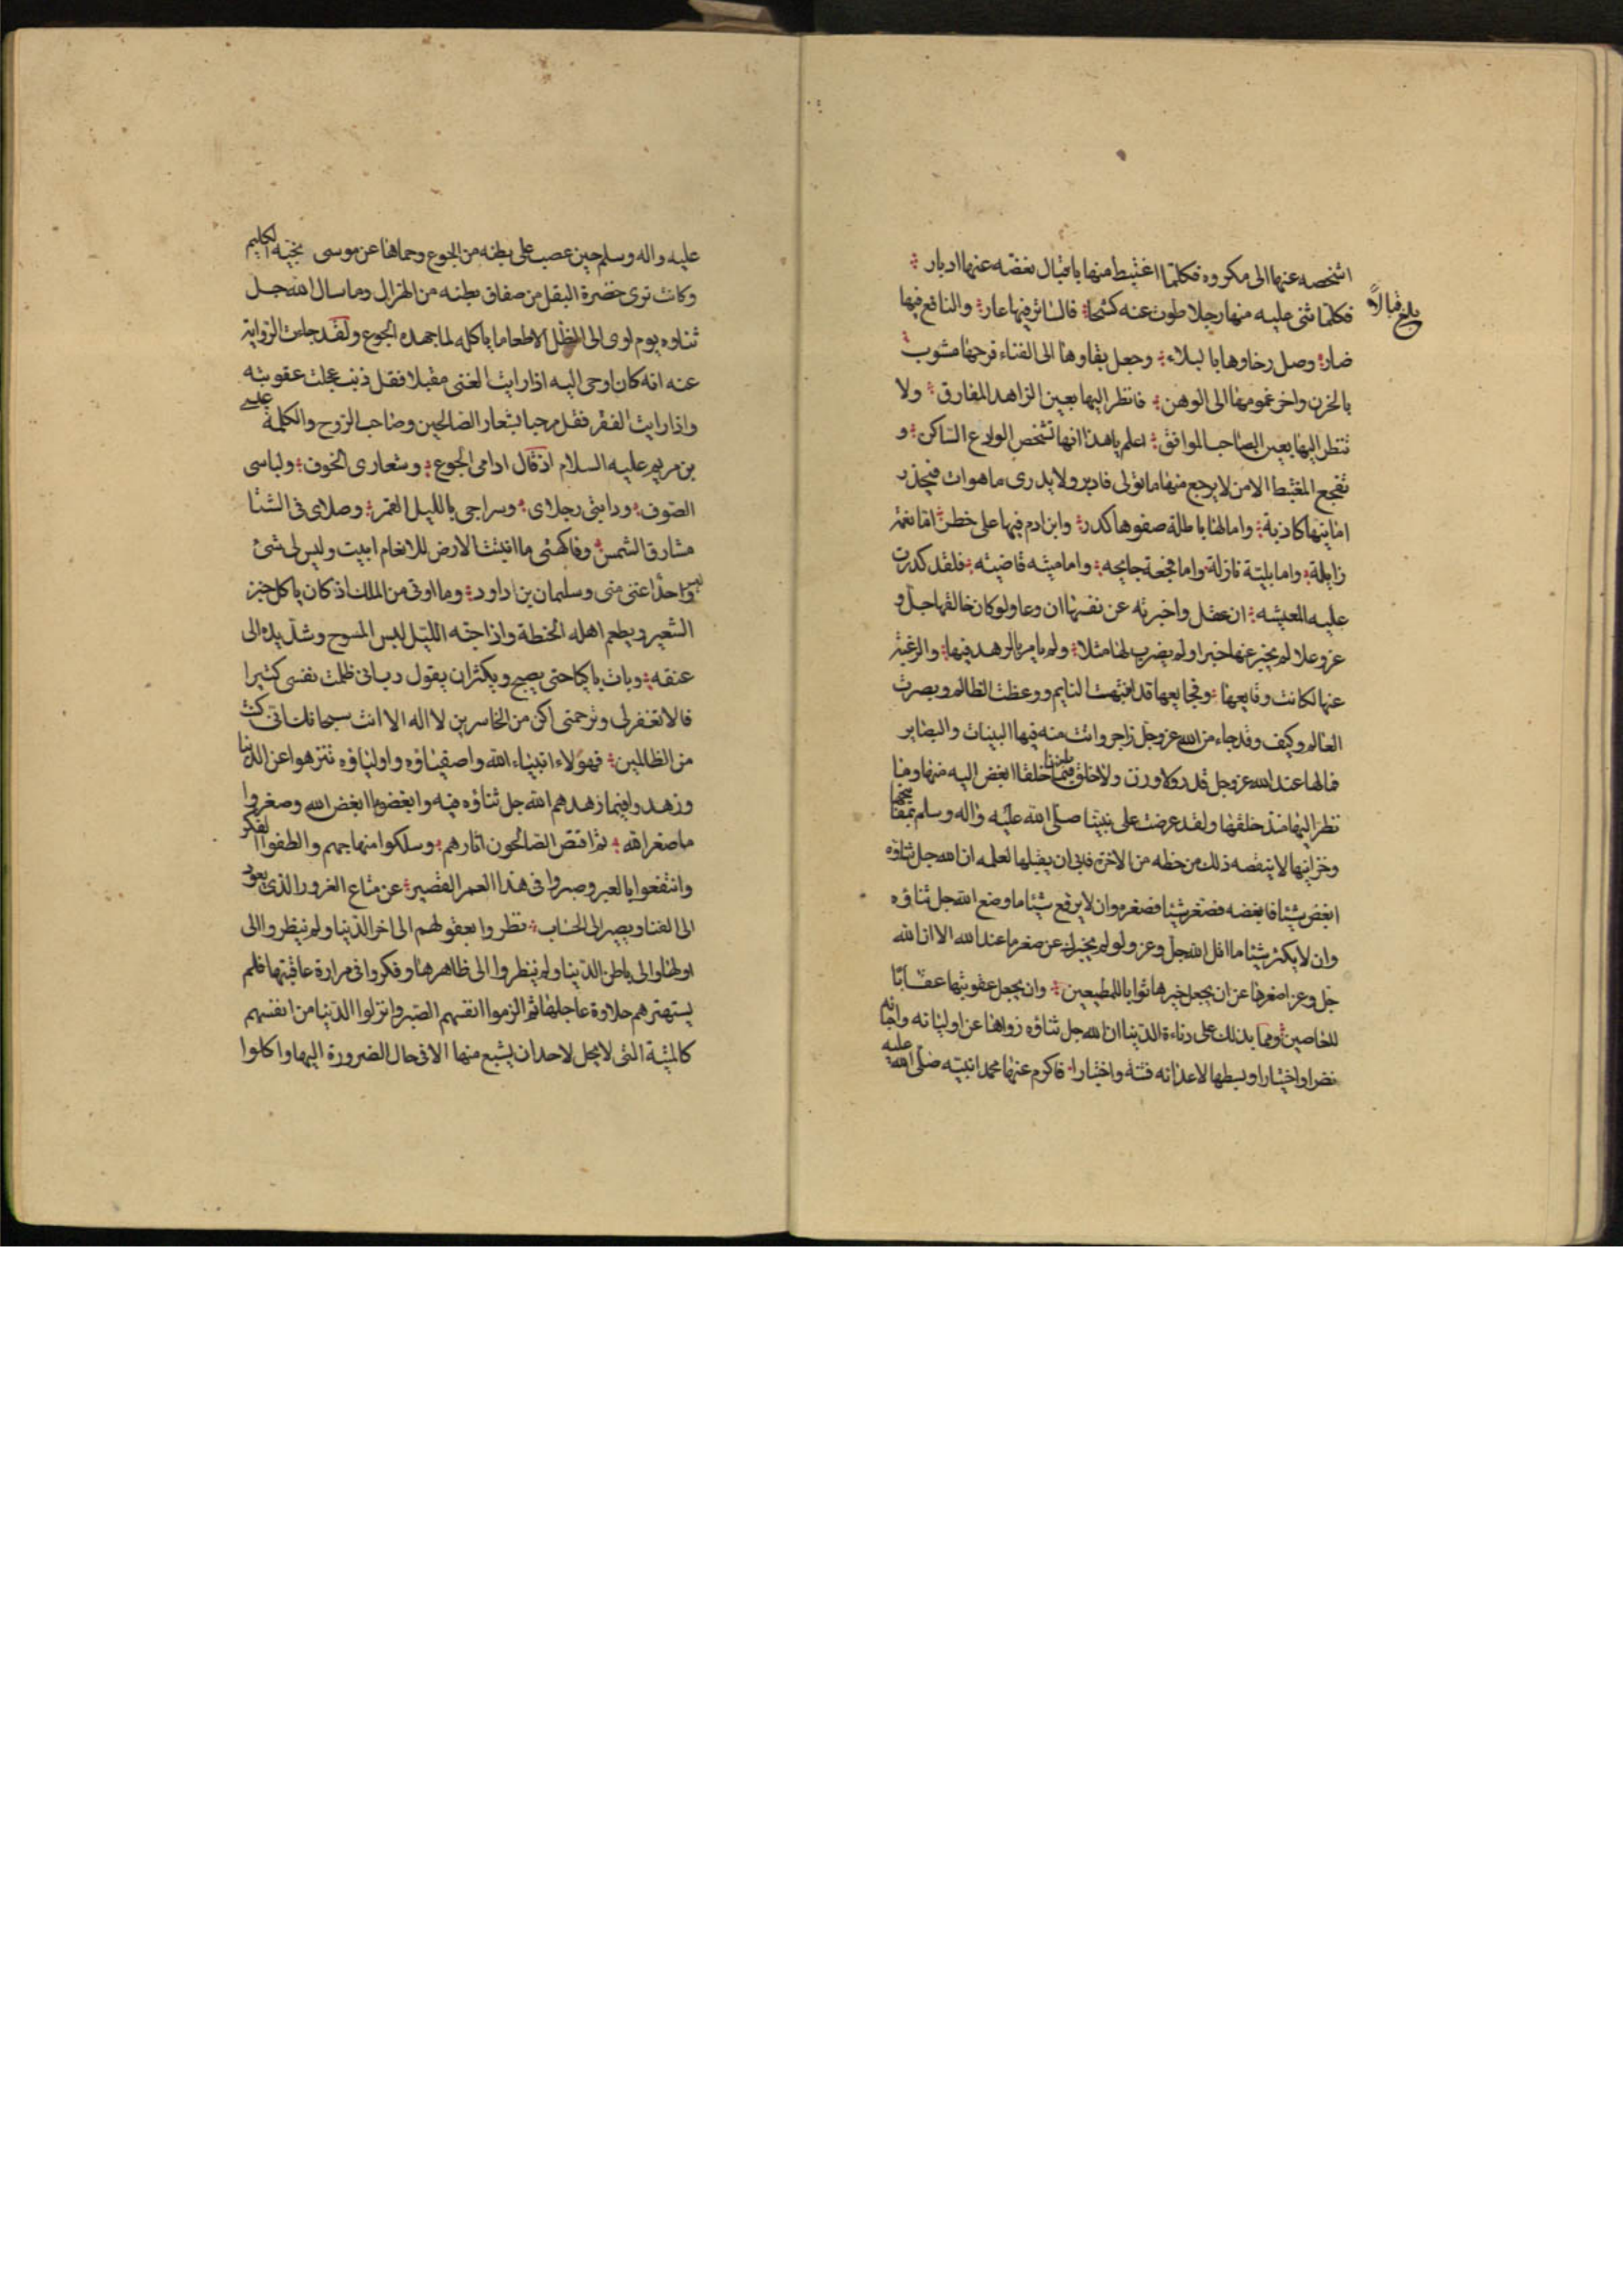 اشخصه عنها الى مكروه فكلما اغتبط منها باقبال نغصه عنها ادبار
فكلما ثنى عليه منها رجلا طوت عنه كشحا فالسار فيها غار والنافع فيها
بلغ قبالا
ضار وصل رخاوها بالبلاء وجعل بقاوها الى الفناء فرحها مشوب
بالحزن واخر غمومها الى الوهن فانظر اليها بعين الزاهد المفارق ولا
تنظر اليها بعين الصاحب الموافق اعلم يا هذا انها تشخص الوادع الساكن و
تفجع المغتبط الامن لا يرجع منها ما تولى فادبر ولا يدرى ما هو ات فيحذر
امانيها كاذبة وامالها باطلة صفوها كدر وابن ادم فيها على خطر اما نعمة
زايلة واما بلية نازلة واما فجعة جايحه واما منيه قاضيه فلقد كدرت
عليه المعيشه ان عقل واخبرته عن نفسها ان وعا ولو كان خالقها جل و
عز وعلا لم يخبر عنها خبرا ولم يضرب لها مثلا ولم يامر بالزهد فيها والرغبة
عنها لكانت وقايعها وفجايعها قد انبهت النايم ووعظت الظالم وبصرت
العالم وكيف وقد جاء من الله عز وجل زاجر واتت منه فيها البينات والبصاير
فما لها عند الله عز وجل قدر ولا وزن ولا خلق فيما بلغنا خلقا ابغض اليه منها وما
نظر اليها منذ خلقها ولقد عرضت على نبينا صلى الله عليه واله وسلم بمفاتيحها
وخزاينها لا ينقصه ذلك من حظه من الاخرة فابى ان يقبلها لعلمه ان الله جل ثناؤه
ابغض شيئا فابغضه فصغر شيئا فصغره وان لا يرفع شيئا ما وضع الله جل ثناؤه
وان لا يكثر شيئا ما اقل الله جل وعز ولو لم يخبرك عن صغرها عند الله الا ان الله
جل وعز اصغرها عن ان يجعل خيرها ثوابا للمطيعين وان يجعل عقوبتها عقابا
للعاصين ومما يدلك على دناءة الدنيا ان الله جل ثناؤه زواها عن اوليائه واحبائه
نضرا واختيارا وبسطها لاعدائه فتنة واختبارا فاكرم عنها محمدا نبيه صلى الله عليه
عليه واله وسلم حين عصب على بطنه من الجوع وحماها عن موسى نجيه الكليم
وكانت ترى خضرة البقل من صفاق بطنه من الهزال وما سال الله جل
ثناوه يوم اوى الى الظل الا طعاما ياكله لما جهده الجوع ولقد جاءت الرواية
عنه انه كان اوحى اليه اذا رايت الغنى مقبلا فقل ذنب عجلت عقوبته
واذا رايت الفقر فقل مرحبا بشعار الصالحين وصاحب الروح والكلمة عيسى
بن مريم عليه السلام اذ قال ادامى الجوع وشعارى الخوف ولباسى
الصوف ودابتى رجلاى وسراجى بالليل القمر وصلاى فى الشتا
مشارق الشمس وفاكهتى ما انبتت الارض للانعام ابيت وليس لى شئ
وليس احدا غنى منى وسليمان بن داود وما اوتى من الملك اذ كان ياكل خبز
الشعير ويطعم اهله الحنطة واذا جنه الليل لبس المسوح وشد يده الى
عنقه وبات باكيا حتى يصبح ويكثر ان يقول رب انى ظلمت نفسى كثيرا
فالا تغفر لى وترحمنى اكن من الخاسرين لا اله الا انت سبحانك انى كنت
من الظالمين فهؤلاء انبياء الله واصفياؤه واولياؤه تنزهوا عن الدنيا
وزهدوا فيما زهدهم الله جل ثناؤه فيه وابغضوا ما ابغض الله وصغروا
ما صغر الله ثم اقتص الصالحون اثارهم وسلكوا منهاجهم والطفوا الفكر
وانتفعوا بالعبر وصبروا فى هذا العمر القصير عن متاع الغرور الذى يعود
الى الفنا ويصير الى الحساب نظروا بعقولهم الى اخر الدنيا ولم ينظروا الى
اولها والى باطن الدنيا ولم ينظروا الى ظاهرها وفكروا فى مرارة عاقبتها فلم
يستهترهم حلاوة عاجلها ثم الزموا انفسهم الصبر وانزلوا الدنيا من انفسهم
كالميتة التى لا يحل لاحد ان يشبع منها الا فى حال الضرورة اليها واكلوا